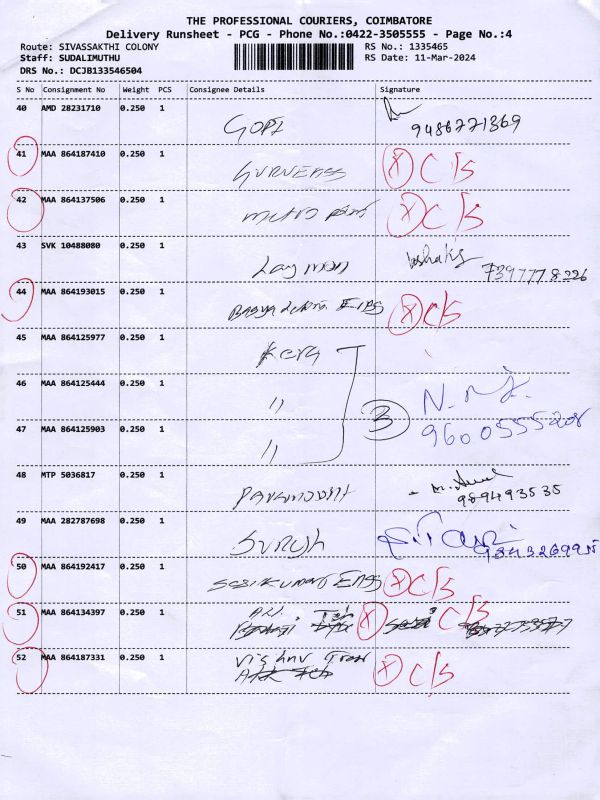 THE PROFESSIONAL COURIERS, COIMBATORE
Delivery Runsheet - PCG - Phone No.:0422-3505555 - Page No.:4
Route: SIVASSAKTHI COLONY RS No.: 1335465
Staff: SUDALIMUTHU RS Date: 11-Mar-2024
DRS No.: DCJB133546504
S No Consignment No Weight PCS Consignee Details Signature
40 AMD 28231710 0.250 1 GOPI 9486771369
41 MAA 864187410 0.250 1 X C/S
42 MAA 864137506 0.250 1 metro point X C/S
43 SVK 10488080 0.250 1 Laymon 7397778226
44 MAA 864193015 0.250 1 X C/S
45 MAA 864125977 0.250 1
46 MAA 864125444 0.250 1 " 3
47 MAA 864125903 0.250 1 " 9600555208
48 MTP 5036817 0.250 1 Paramount 989493535
49 MAA 282787698 0.250 1 Suresh
50 MAA 864192417 0.250 1 Sasikumar Engg X C/S
51 MAA 864134397 0.250 1 X C/S
52 MAA 864187331 0.250 1 X C/S